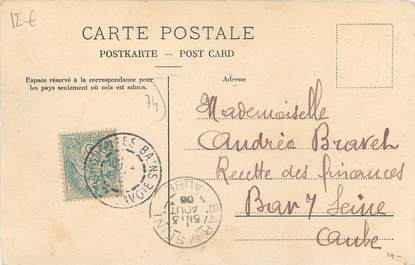 12-€
CARTE POSTALE
POSTKARTE — POST CARD
Espace réservé à la correspondance pour
les pays seulement où cela est admis.
Adresse
74
Mademoiselle
Andrée
Recette des finances
Bar s/ Seine
Aube
BAINS
SAVOIE
BAR-S/-SEINE
AUBE
5E 13
AOUT
06
4-